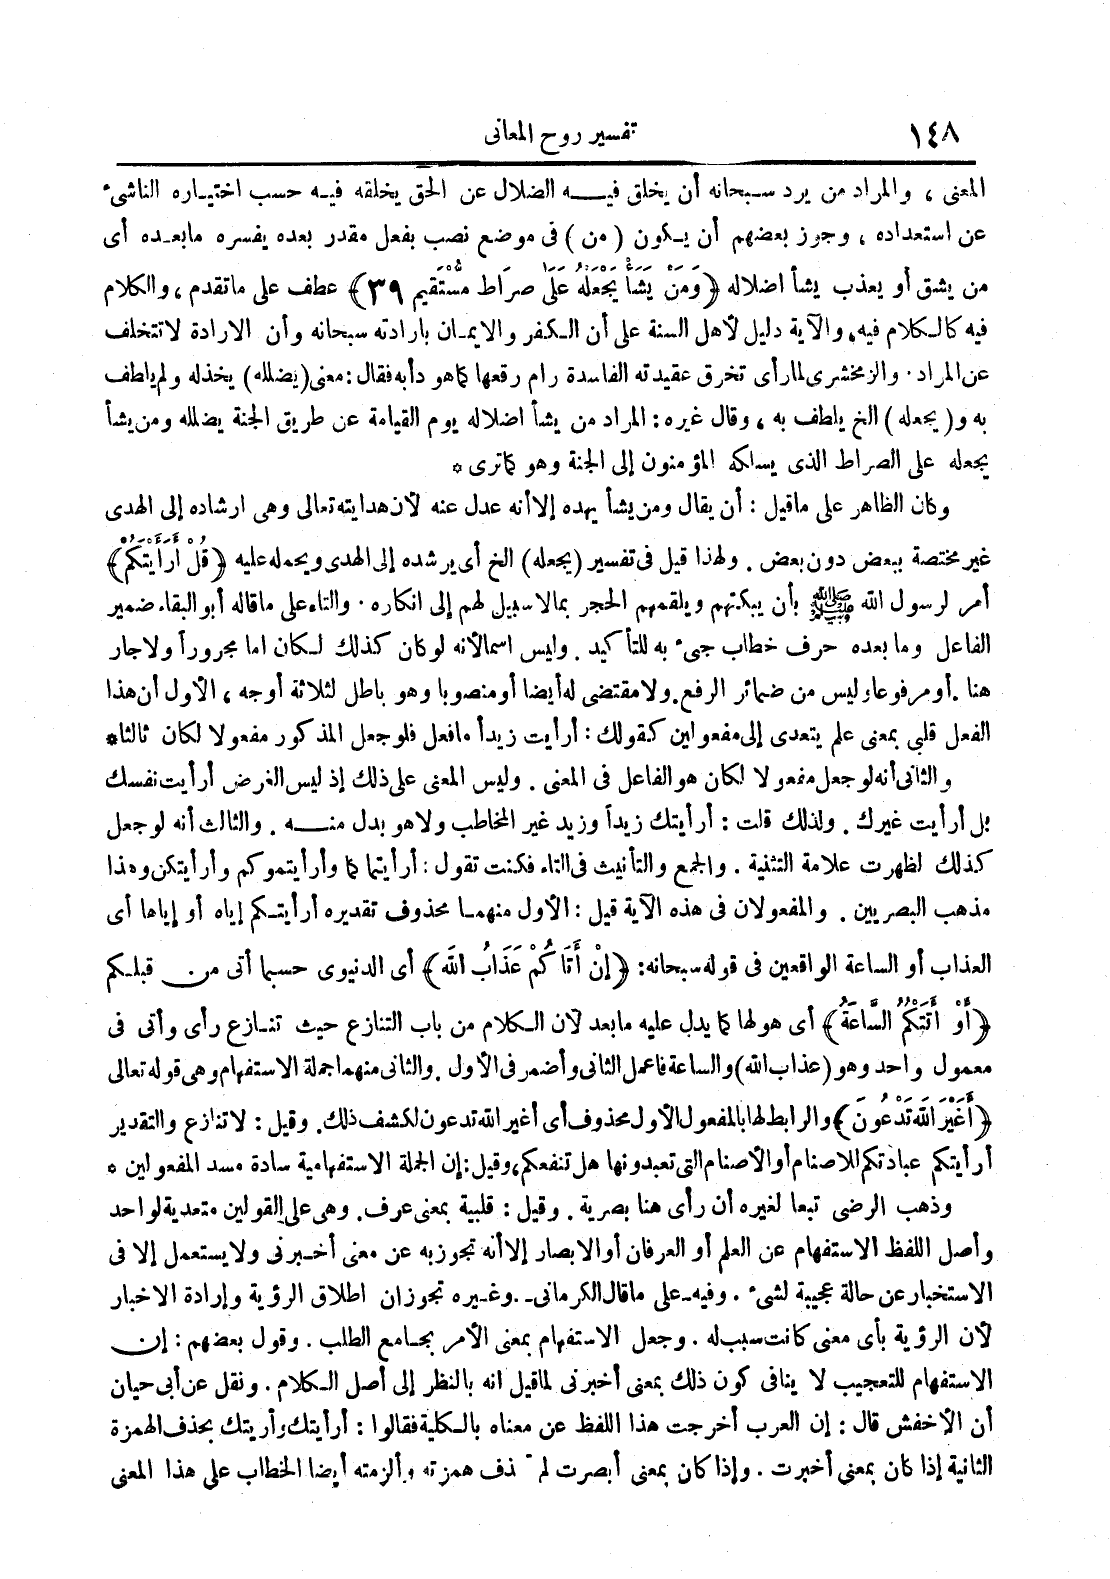 ١٤٨
تفسير روح المعانى
المعنى ، والمراد من يرد سبحانه أن يخلق فيه الضلال عن الحق يخلقه فيه حسب اختياره الناشىء
عن استعداده ، وجوز بعضهم أن يكون ( من ) فى موضع نصب بفعل مقدر بعده يفسره مابعده أى
من يشق أو يعذب يشأ اضلاله ﴿ وَمَنْ يَشَأْ يَجْعَلْهُ عَلَىٰ صِرَاط مُّسْتَقيم ٣٩ ﴾ عطف على ماتقدم ، والكلام
فيه كالكلام فيه، والآية دليل لأهل السنة على أن الكفر والايمان بارادته سبحانه وأن الارادة لاتتخلف
عن المراد . والزمخشرى لما رأى تخرق عقيدته الفاسدة رام رقعها كما هو دأبه فقال : معنى (يضلله) يخذله ولم يلطف
به و( يجعله ) الخ يلطف به ، وقال غيره : المراد من يشأ اضلاله يوم القيامة عن طريق الجنة يضلله ومن يشأ
يجعله على الصراط الذى يسلكه المؤمنون إلى الجنة وهو كما ترى *
وكان الظاهر على ماقيل : أن يقال ومن يشأ يهده إلا أنه عدل عنه لأن هدايته تعالى وهى ارشاده إلى الهدى
غير مختصة ببعض دون بعض . ولهذا قيل فى تفسير (يجعله) الخ أى يرشده إلى الهدى ويحمله عليه ﴿ قُلْ أَرَأَيْتَكُمْ ﴾
أمر لرسول الله ﷺ بأن يبكتهم ويلقمهم الحجر بما لا سبيل لهم إلى انكاره . والتاء على ماقاله أبو البقاء ضمير
الفاعل وما بعده حرف خطاب جىء به للتأكيد . وليس اسما لأنه لو كان كذلك لكان اما مجروراً ولا جار
هنا . أو مرفوعا وليس من ضمائر الرفع . ولا مقتضى له أيضا أو منصوبا وهو باطل لثلاثة أوجه ، الأول أن هذا
الفعل قلبى بمعنى علم يتعدى إلى مفعولين كقولك : أرأيت زيداً مافعل فلو جعل المذكور مفعولا لكان ثالثا *
والثانى أنه لو جعل مفعولا لكان هو الفاعل فى المعنى . وليس المعنى على ذلك إذ ليس الغرض أرأيت نفسك
بل أرأيت غيرك . ولذلك قلت : أرأيتك زيداً وزيد غير المخاطب ولا هو بدل منه . والثالث أنه لو جعل
كذلك لظهرت علامة التثنية . والجمع والتأنيث فى التاء فكنت تقول : أرأيتما كما وأرأيتموكم وأرأيتكن وهذا
مذهب البصريين . والمفعولان فى هذه الآية قيل : الأول منهما محذوف تقديره أرأيتكم إياه أو إياها أى
العذاب أو الساعة الواقعين فى قوله سبحانه : ﴿ إنْ أَتَاكُمْ عَذَابُ اللَّه ﴾ أى الدنيوى حسبما أتى من قبلكم
﴿ أَوْ أَتَتْكُمُ السَّاعَةُ ﴾ أى هولها كما يدل عليه مابعد لأن الكلام من باب التنازع حيث تنازع رأى وأتى فى
معمول واحد وهو (عذاب الله) والساعة فاعمل الثانى وأضمر فى الأول . والثانى منهما جملة الاستفهام وهى قوله تعالى
﴿ أَغَيْرَ اللَّه تَدْعُونَ ﴾ والرابط لها بالمفعول الأول محذوف أى أغير الله تدعون لكشف ذلك . وقيل : لا تنازع والتقدير
أرأيتكم عبادتكم للاصنام أو الأصنام التى تعبدونها هل تنفعكم، وقيل : إن الجملة الاستفهامية سادة مسد المفعولين *
وذهب الرضى تبعا لغيره أن رأى هنا بصرية . وقيل : قلبية بمعنى عرف . وهى على القولين متعدية لواحد
وأصل اللفظ الاستفهام عن العلم أو العرفان أو الابصار إلا أنه تجوز به عن معنى أخبرنى ولا يستعمل إلا فى
الاستخبار عن حالة عجيبة لشىء . وفيه ـ على ماقال الكرمانى ـ . وغيره تجوزان اطلاق الرؤية وإرادة الاخبار
لأن الرؤية بأى معنى كانت سبب له . وجعل الاستفهام بمعنى الأمر بجامع الطلب . وقول بعضهم : إن
الاستفهام للتعجيب لا ينافى كون ذلك بمعنى أخبرنى لما قيل انه بالنظر إلى أصل الكلام . ونقل عن أبى حيان
أن الأخفش قال : إن العرب أخرجت هذا اللفظ عن معناه بالكلية فقالوا : أرأيتك وأريتك بحذف الهمزة
الثانية إذا كان بمعنى أخبرت . وإذا كان بمعنى أبصرت لم ذف همزته وألزمته أيضا الخطاب على هذا المعنى